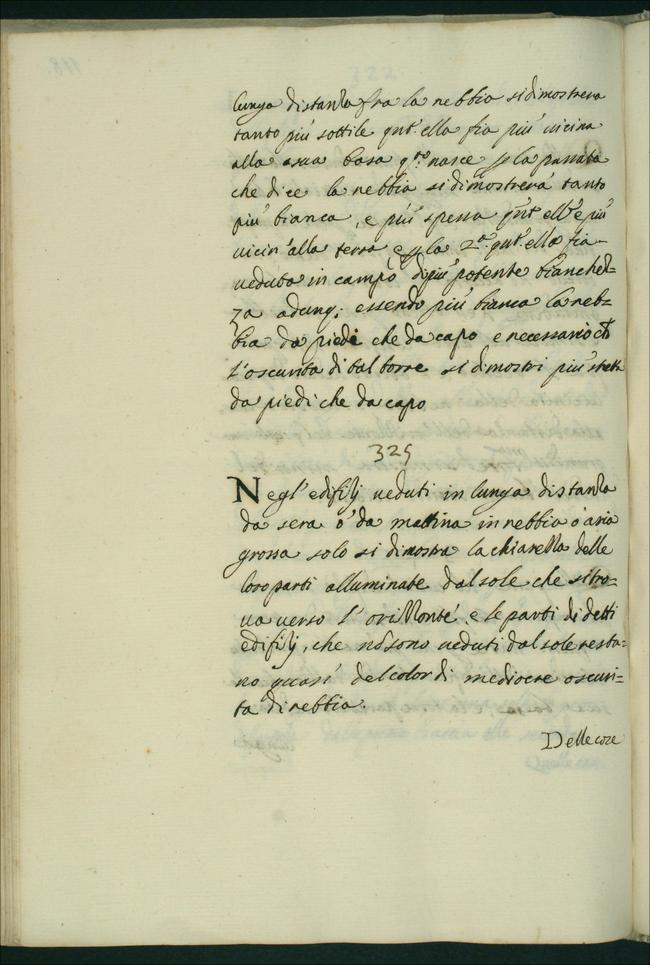 lunga distanza fra la nebbia si dimostrera
tanto più sottile qnt. ella fia più uicina
alla sua basa q.to nasce p la passata
che dice la nebbia si dimostrerà tanto
più bianca, e più spessa qnt. ell'è più
uicin'alla terra e p la 2.a qnt. ella fia
ueduta in campo di più potente bianchez=
za adunq; essendo più bianca la neb=
bia da piedi che da capo e necessario ch
l'oscurita di tal torre si dimostri più stretta
da piedi che da capo
325
Negl'edifitij ueduti in lunga distanza
da sera ò da mattina in nebbia ò aria
grossa solo si dimostra la chiarezza delle
loro parti alluminate dal sole che si tro=
ua uerso l'orizzonte. e le parti di detti
edifitij, che nō sono ueduti dal sole resta=
no quasi del color di mediocre oscuri=
ta di nebbia
Delle cose